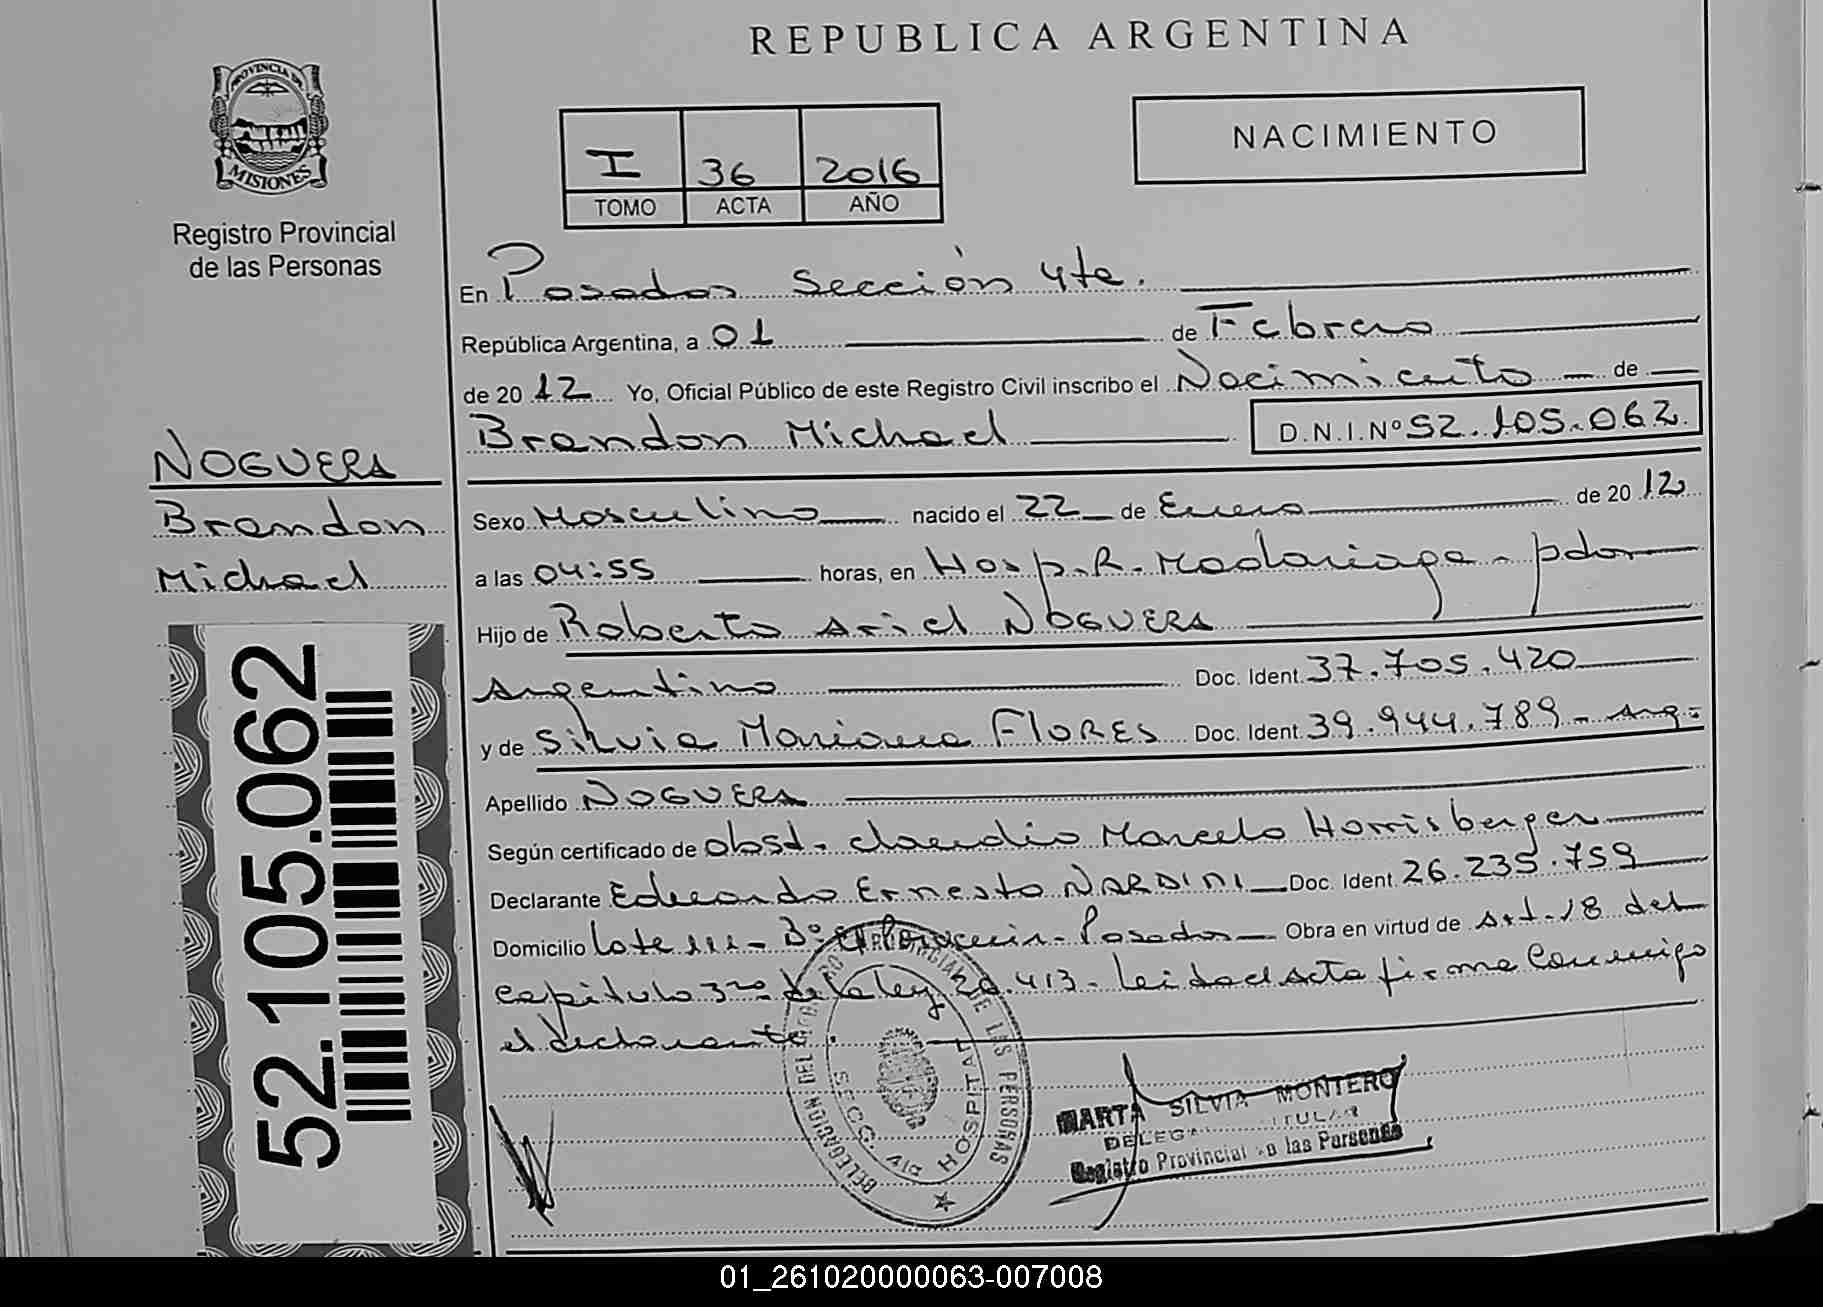 REPUBLICA ARGENTINA
PROVINCIA DE
MISIONES
Registro Provincial
de las Personas
I 36 2016
TOMO ACTA AÑO
NACIMIENTO
En Posadas Sección 4ta.
República Argentina, a 01 de Febrero
de 2012 Yo, Oficial Público de este Registro Civil inscribo el Nacimiento de
Brandon Michael D.N.I.Nº 52.105.062.
NOGUERA
Brandon
Michael
Sexo Masculino nacido el 22 de Enero de 2012
a las 04:55 horas, en Hosp. R. Madariaga - pdas
Hijo de Roberto Ariel NOGUERA
Argentino Doc. Ident. 37.705.420
y de Silvia Mariana FLORES Doc. Ident. 39.944.789 - Arg.
Apellido NOGUERA
Según certificado de obst. Claudio Marcelo Horrisberger
Declarante Eduardo Ernesto NARDINI Doc. Ident. 26.235.759
Domicilio Lote 111 - Posadas Obra en virtud de Art. 18 del
Capitulo 3ro. de la ley 20.413 - leida el Acta firma Conmigo
el declarante.
52.105.062
DELEGACION DEL REGISTRO PROVINCIAL DE LAS PERSONAS
SECC. 4ta HOSPITAL
MARTA SILVIA MONTERO
TITULAR
Registro Provincial de las Personas
01_261020000063-007008